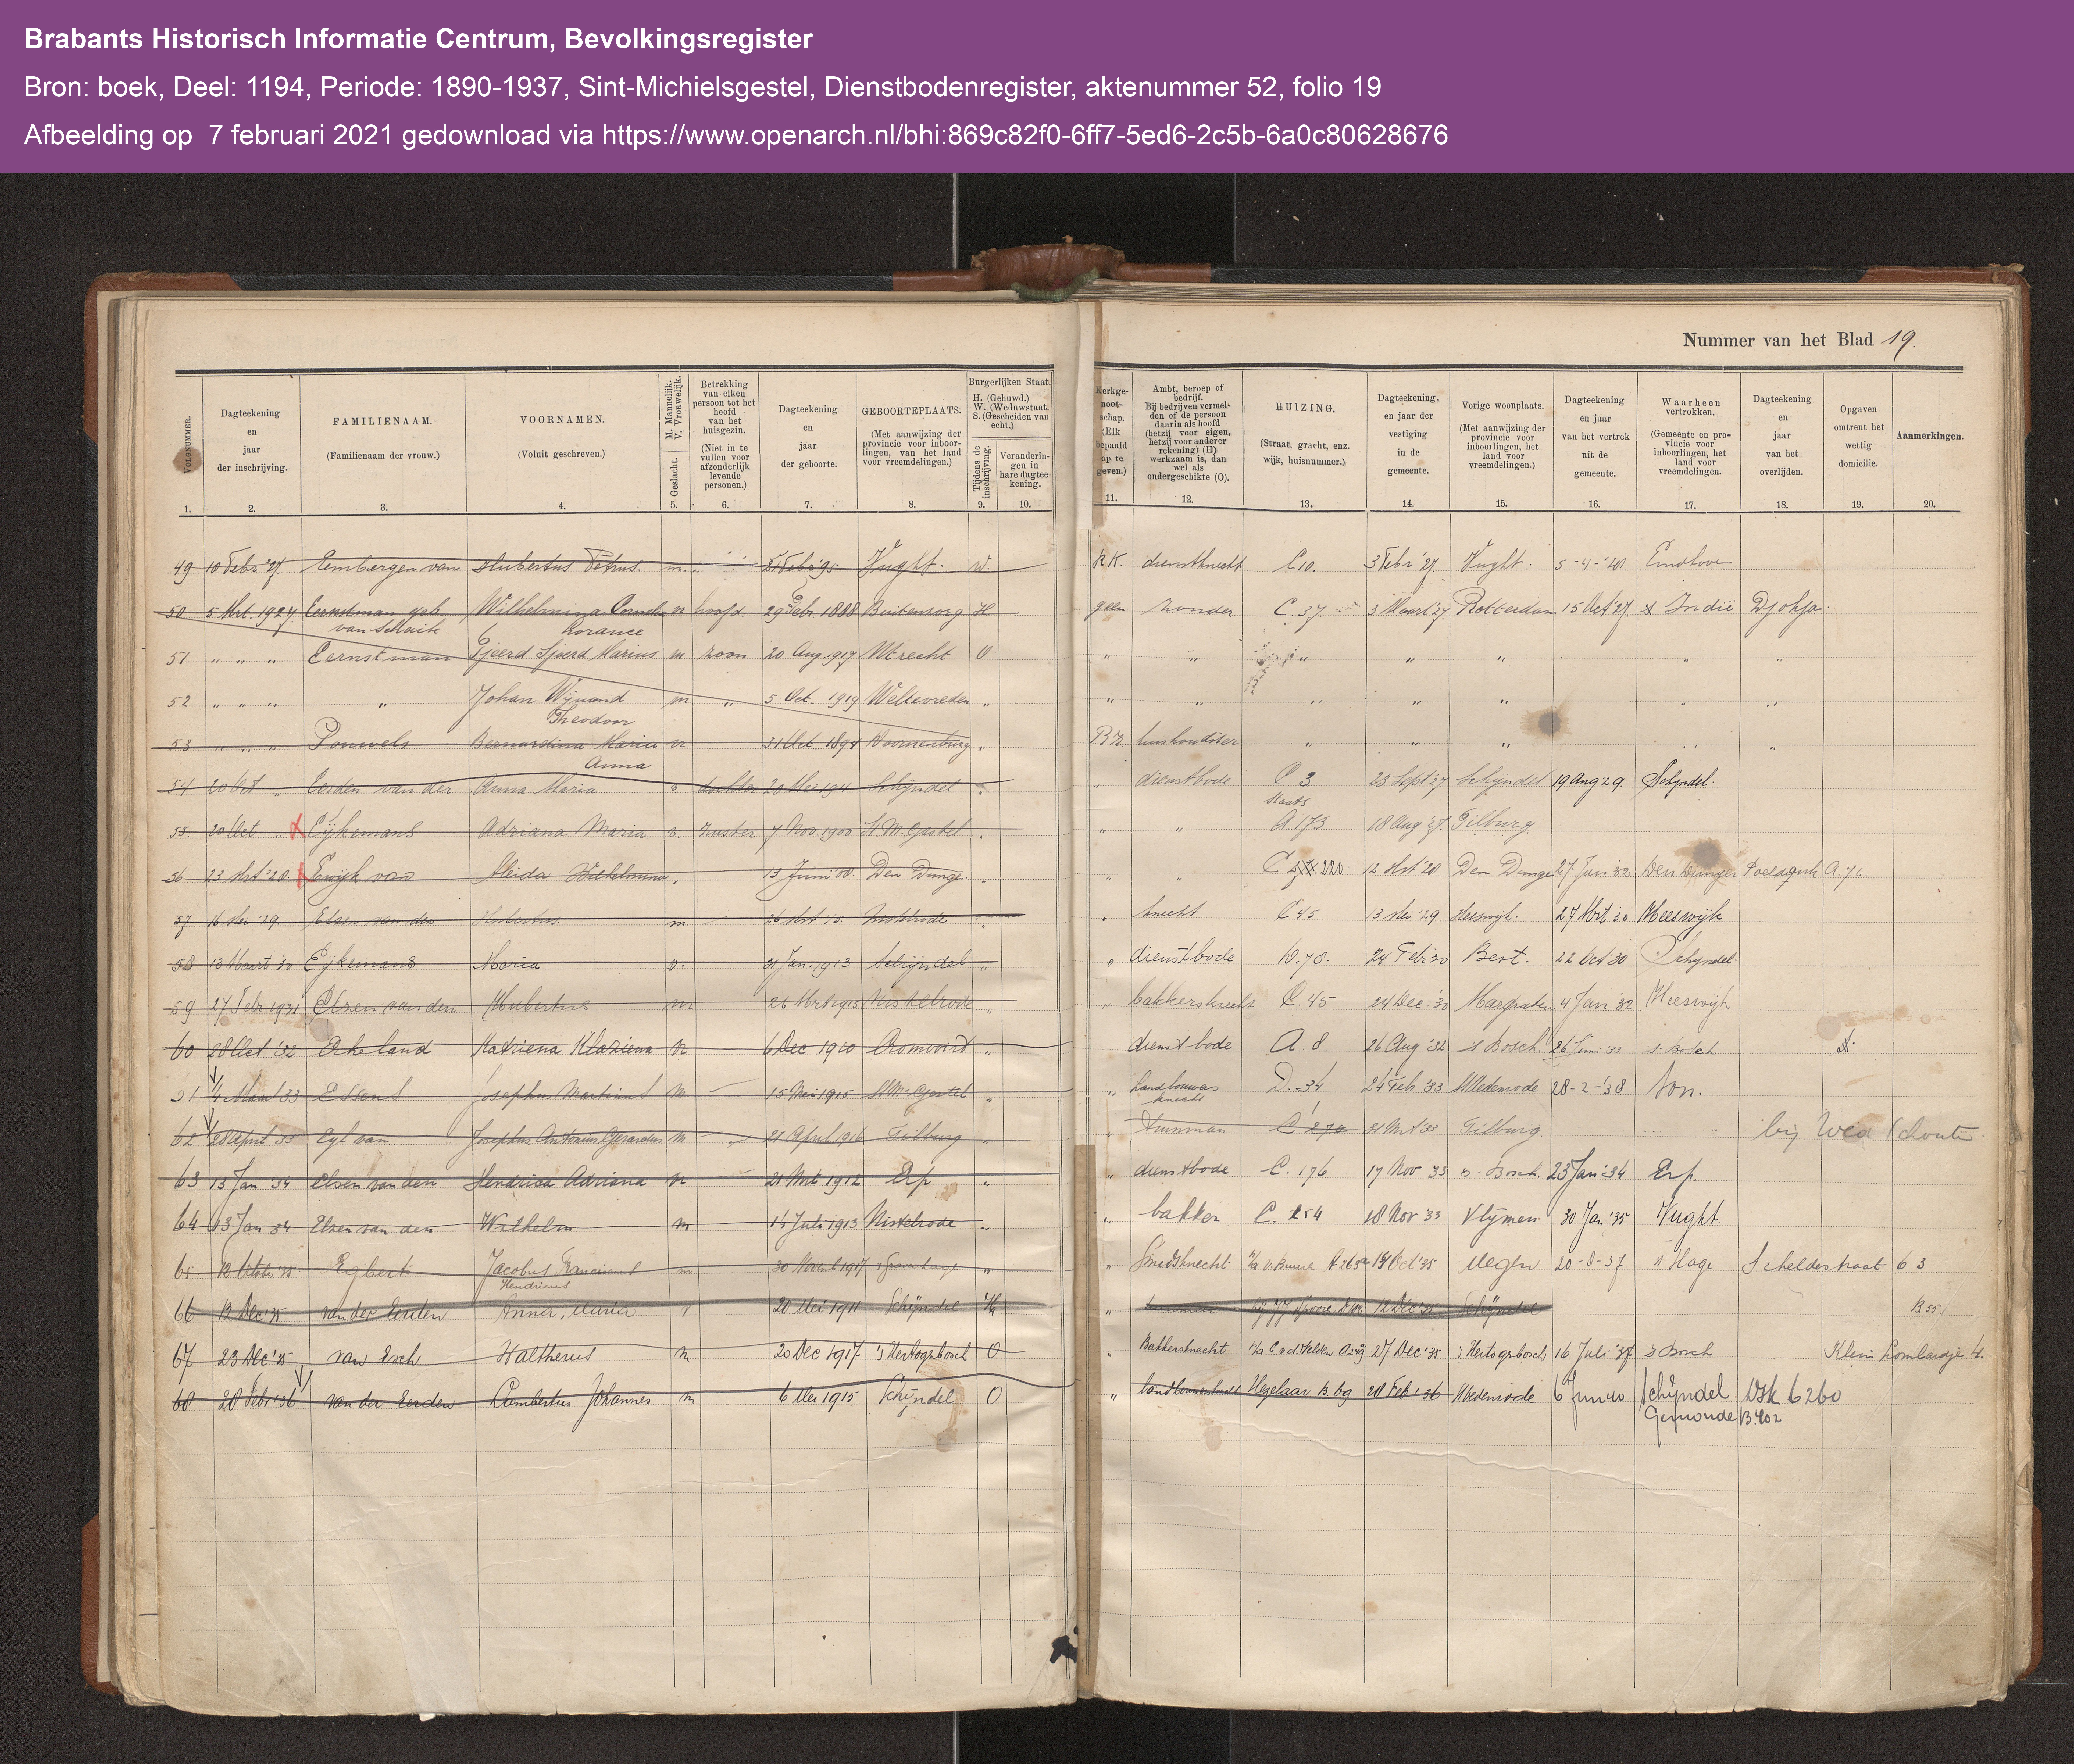 Brabants Historisch Informatie Centrum, Bevolkingsregister
Bron: boek, Deel: 1194, Periode: 1890-1937, Sint-Michielsgestel, Dienstbodenregister, aktenummer 52, folio 19
Afbeelding op 7 februari 2021 gedownload via https://www.openarch.nl/bhi:869c82f0-6ff7-5ed6-2c5b-6a0c80628676
Nummer van het Blad 19.
VOLGNUMMER. 1.
Dagteekening en jaar der inschrijving. 2.
FAMILIENAAM. (Familienaam der vrouw.) 3.
VOORNAMEN. (Voluit geschreven.) 4.
M. Mannelijk. V. Vrouwelijk. Geslacht. 5.
Betrekking van elken persoon tot het hoofd van het huisgezin. (Niet in te vullen voor afzonderlijk levende personen.) 6.
Dagteekening en jaar der geboorte. 7.
GEBOORTEPLAATS. (Met aanwijzing der provincie voor inboorlingen, van het land voor vreemdelingen.) 8.
Burgerlijken Staat. H. (Gehuwd.) W. (Weduwstaat. S. (Gescheiden van echt.)
Tijdens de inschrijving. 9.
Veranderingen in hare dagteekening. 10.
Kerkgenootschap. (Elk bepaald op te geven.) 11.
Ambt, beroep of bedrijf. Bij bedrijven vermelden of de persoon daarin als hoofd (hetzij voor eigen, hetzij voor anderer rekening) (H) werkzaam is, dan wel als ondergeschikte (O). 12.
HUIZING. (Straat, gracht, enz. wijk, huisnummer.) 13.
Dagteekening, en jaar der vestiging in de gemeente. 14.
Vorige woonplaats. (Met aanwijzing der provincie voor inboorlingen, het land voor vreemdelingen.) 15.
Dagteekening en jaar van het vertrek uit de gemeente. 16.
Waarheen vertrokken. (Gemeente en provincie voor inboorlingen, het land voor vreemdelingen. 17.
Dagteekening en jaar van het overlijden. 18.
Opgaven omtrent het wettig domicilie. 19.
Aanmerkingen. 20.
49 10 Febr '27 Eembergen van Hubertus Petrus. m. Febr '95 Vught. W. R.K. dienstknecht C 10. 3 Febr '27. Vught. 5-4-'28 Eindhoven
50 5 Mrt. 1927. Eernstman geb. van Schaik Wilhelmina Cornelia v hoofd 29 Febr. 1888 Buitenzorg H geen zonder C. 37 3 Maart '27. Rotterdam 15 Oct '27. Indië Djokja.
51 " " " Eernstman Tjeerd Sjoerd Marius m zoon 20 Aug. 1917 Utrecht O " " " " " " "
52 " " " " Johan Wijnand Theodoor m " 5 Oct. 1919 Weltevreden " " " " " " " "
53 " " " Pouwels Bernardina Maria Anna v 31 Oct. 1894 Doornenburg " R.K. huishoudster " " " " "
54 20 Oct " Eerden van der Anna Maria v. dochter 20 Mei Schijndel " " dienstbode C 3 23 Sept '27 Schijndel 19 Aug 29. Schijndel.
55 20 Oct " Eijkemans Adriana Maria v. zuster 7 Nov. 1900 St. M. Gestel " " " A. 173 18 Aug '27. Tilburg
56 23 Mrt '28 Ewijk van Aleida Wilhelmina 13 Juni '08. Den Dungen " " " C 220 12 Mrt '28 Den Dungen 27 Jan '32 Den Dungen Poeldonk A. 76.
57 16 Mei '29 Elzen van den Hubertus m 26 Mrt Nistelrode " knecht C 45 13 Mei '29 Heeswijk. 27 Mrt '30 Heeswijk
58 13 Maart '30 Eykemans Maria v. 31 Jan. 1913 Schijndel " " dienstbode D. 78. 24 Feb '30 Best. 22 Oct '30 Schijndel.
59 27 Febr 1931 Elzen van den Hubertus m 26 Mrt 1913 Nistelrode " " bakkersknecht C. 45 24 Dec. '30 Margraten 4 Jan '32 Heeswijk
60 28 Oct '32 Erkeland Katriena Klaziena v 6 Dec 1910 " dienstbode A. 8 26 Aug '32 's Bosch 26 Juni 33 's Bosch
4 Maart 33 Essens Josephus Martinus M 15 Mei 1915 St. M. Gestel " " Landbouwersknecht D. 34 24 Feb '33 St Oedenrode 28-2-'38 Son.
62 28 April 33 Eyl van Josephus Antonius Gerardus M 21 April 1916 Tilburg " tuinman C 270 31 Mrt '33 Tilburg bij Wed Schoute
63 13 Jan '34 Elsen van den Hendrica Adriana v 21 Mrt 1912 Erp " " dienstbode C. 176 17 Nov '33 's Bosch. 23 Jan '34 Erp.
64 13 Jan 34 Elzen van den Wilhelm m 14 Juli 1913 Nistelrode " " bakker C. 254 18 Nov '33 Vlijmen 30 Jan '35 Vught
65 12 October '35 Egberts Jacobus Franciscus Hendricus m 30 Novemb 1917 's Gravenhage " " Smidsknecht 19 Oct '35 Megen 20-8-37 's Hage Scheldestraat 63
66 12 Dec '35 van der Eerden Anna, Maria v 20 Mei 1911 Schijndel " 12 Dec '35 Schijndel B 55
67 23 Dec '35 van Esch Waltherus m 20 Dec 1917 's Hertogenbosch O " Bakkersknecht 27 Dec '35 's Hertogenbosch 16 Juli '37 's Bosch Klein Lombardje 4.
68 28 Febr '36 van der Eerden Lambertus Johannes m 6 Mei 1915 Schijndel O " landbouwersknecht Hezelaar B 69 28 Feb '36 St Oedenrode 6 Juni 40 Schijndel Wsk 6260
Gemonde B. 402